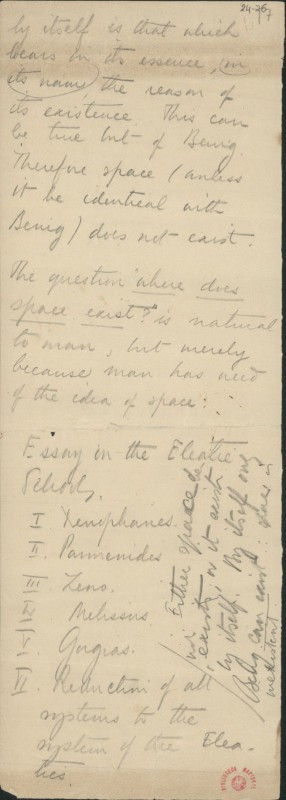 24-76,
by itself is that which
bears in its essence, (in
its name) the reason of
its existence. This can
be true but of Being.
Therefore space (unless
it be identical with
Being) does not exist.
The question "where does
space exist?" is natural
to man, but merely
because man has need
of the idea of space:
Essay on the Eleatic
School,
I. Xenophanes.
II. Parmenides
III. Zeno.
IV. Melissus
V. Gorgias.
VI. Reduction of all
systems to the
system of the Elea-
tics.
Either space be
exists, or it exists
by itself. By itself only
Being can exist: space is
inexistent